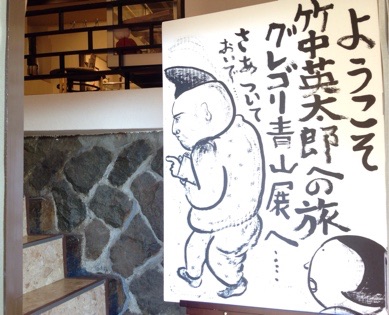 ようこそ
竹中英太郎への旅
グレゴリ青山展へ……
さあついて
おいで